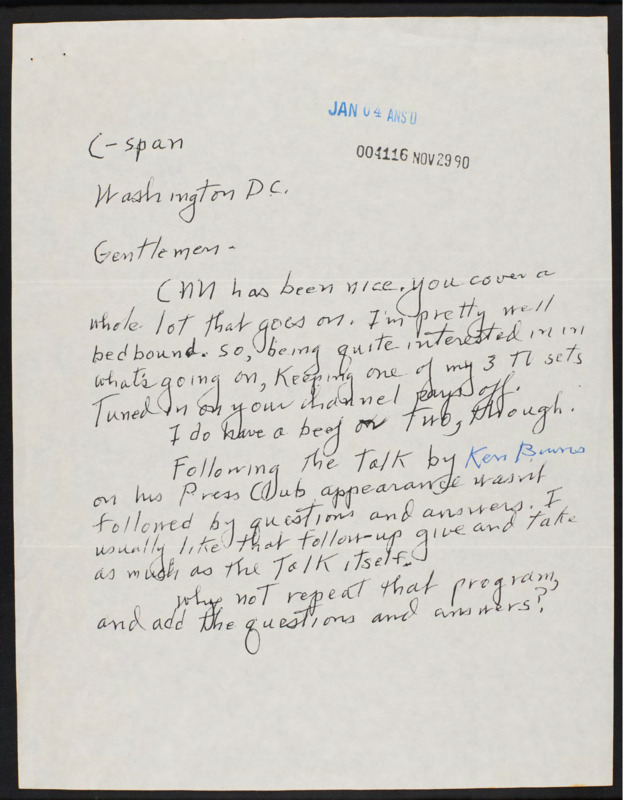 JAN 04 ANS'D
004116 NOV 29 90
C-span
Washington D.C.
Gentlemen -
CNN has been nice. you cover a
whole lot that goes on. I'm pretty well
bedbound. So, being quite interested in in
what's going on, Keeping one of my 3 TV sets
Tuned in on your channel pays off.
I do have a beef or Two, though.
Following The Talk by Ken Burns
on his Press Club appearance wasn't
followed by questions and answers. I
usually like that follow-up give and take
as much as the Talk itself.
Why not repeat that program,
and add the questions and answers?